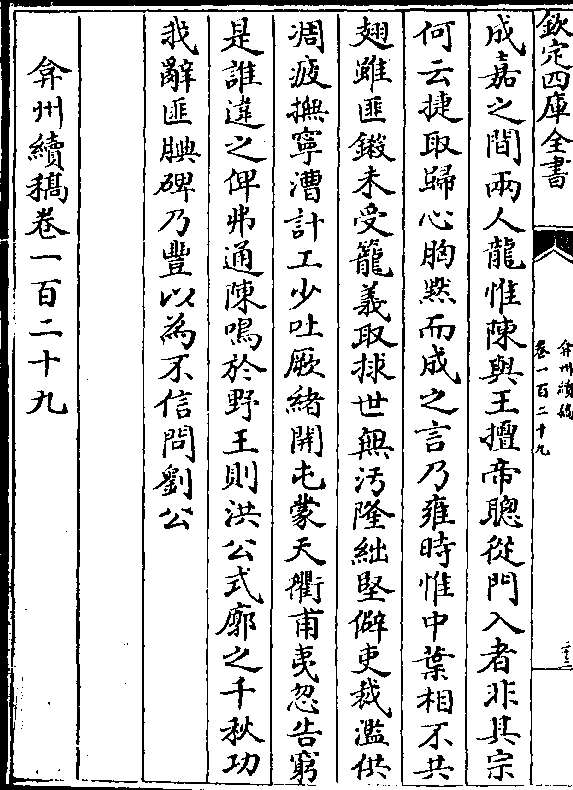 欽定四庫全書
弇州續稿
卷一百二十九
成嘉之間兩人龍惟陳與王擅帝聰從門入者非其宗
何云捷取歸心胸黙而成之言乃雍時惟中葉相不共
翅雖匪鎩未受籠義取捄世無汚隆絀堅僻吏裁濫供
凋疲撫寧漕計工少吐厥緒開屯蒙天衢甫夷忽告窮
是誰違之俾弗通陳鳴於野王則洪公式廓之千秋功
我辭匪腆碑乃豐以為不信問劉公
弇州續稿卷一百二十九